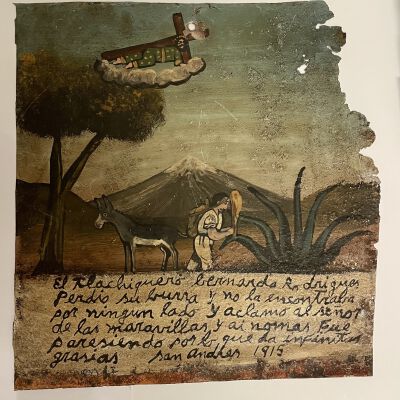 El tlachiquero bernardo Rodrigues
Perdio su burra y no la encontraba
por ningun lado y aclamo al señor
de las maravillas y ai nomas fue
paresiendo por lo que da infinitas
grasias san Andres 1915